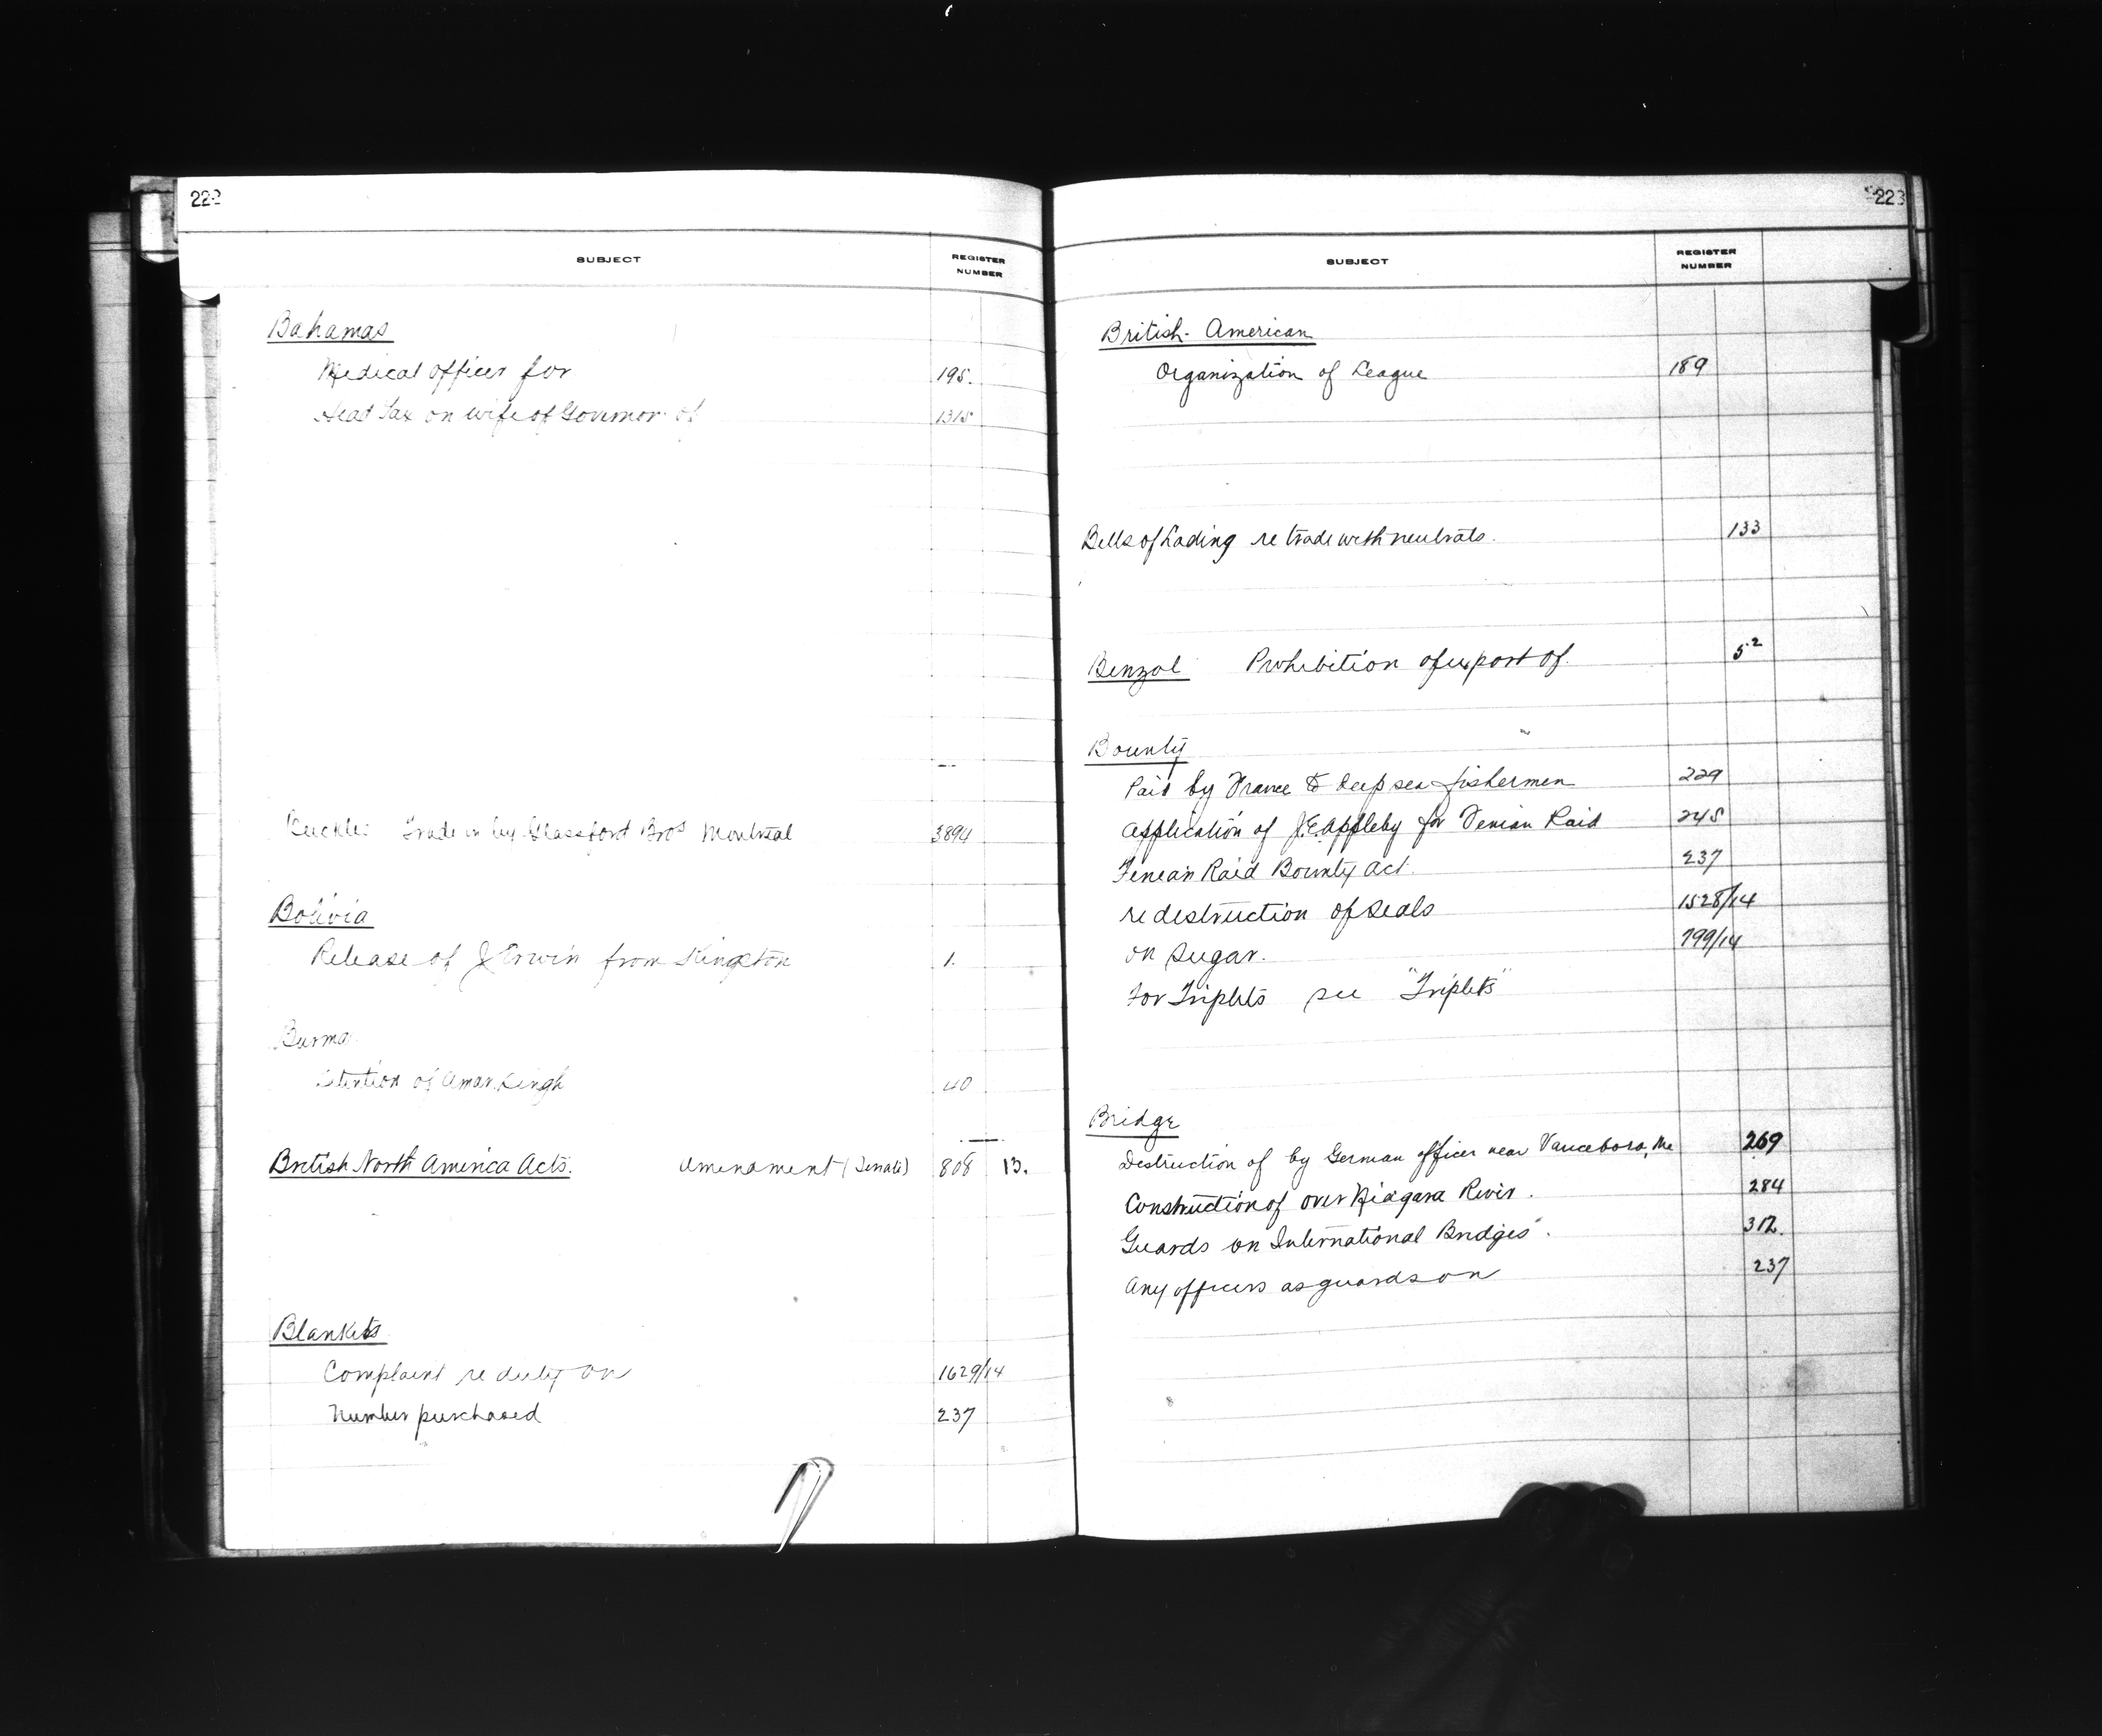 222
SUBJECT REGISTER NUMBER
Bahamas
Medical officer for 195.
Head Tax on wife of Governor of 1315
Trade in by Glassford Bros Montreal 3894
Bolivia
Release of J Erwin from Kingston 1.
Burma
of Amar Singh 40
British North America Acts. Amendment (Senate) 808 13.
Blankets
Complaint re duty on 1629/14
Number purchased 237
223
SUBJECT REGISTER NUMBER
British-American
Organization of League 189
Bills of Lading re trade with neutrals. 133
Benzol Prohibition of export of. 52
Bounty
Paid by France to deep sea fishermen 229
Application of J.E. Appleby for Fenian Raid 245
Fenian Raid Bounty Act. 237
re destruction of Seals 1528/14
on Sugar. 799/14
For Triplets see "Triplets"
Bridge
Destruction of by German officer near Vanceboro, Me 269
Construction of over Niagara River. 284
Guards on International Bridges. 312.
Any officers as guards on 237